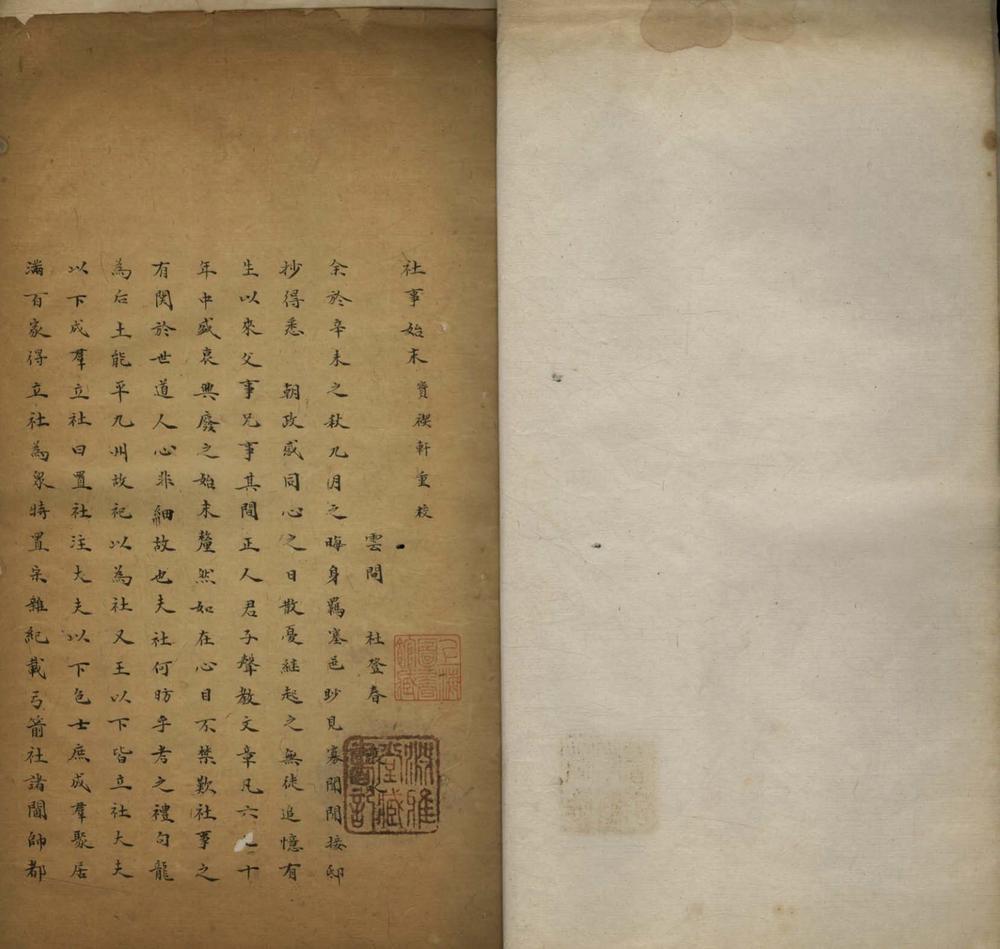 社事始末 賣禊軒重校
雲間 杜登春
余於辛未之秋九月之晦身羈塞邑眇見寡聞間接邸
抄得悉 朝政感同心之日散憂絓起之無徒追憶有
生以來父事兄事其間正人君子聲教文章凡六七十
年中盛衰興廢之始末釐然如在心目不禁歎社事之
有関於世道人心非細故也夫社何昉乎考之禮句龍
為后土能平九州故祀以為社又王以下皆立社大夫
以下成羣立社曰置社注大夫以下包士庶成羣聚居
滿百家得立社為衆特置宋雜紀載弓箭社諸閫帥都
上海圖書館藏